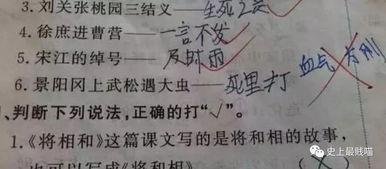 3. 刘关张桃园三结义——生死之交
4. 徐庶进曹营——一言不发
5. 宋江的绰号——及时雨
6. 景阳冈上武松遇大虫——死里打 血气方刚
、判断下列说法,正确的打“√”。
1.《将相和》这篇课文写的是将和相的故事,
也可以写成《将和相》 (×)
史上最贱喵